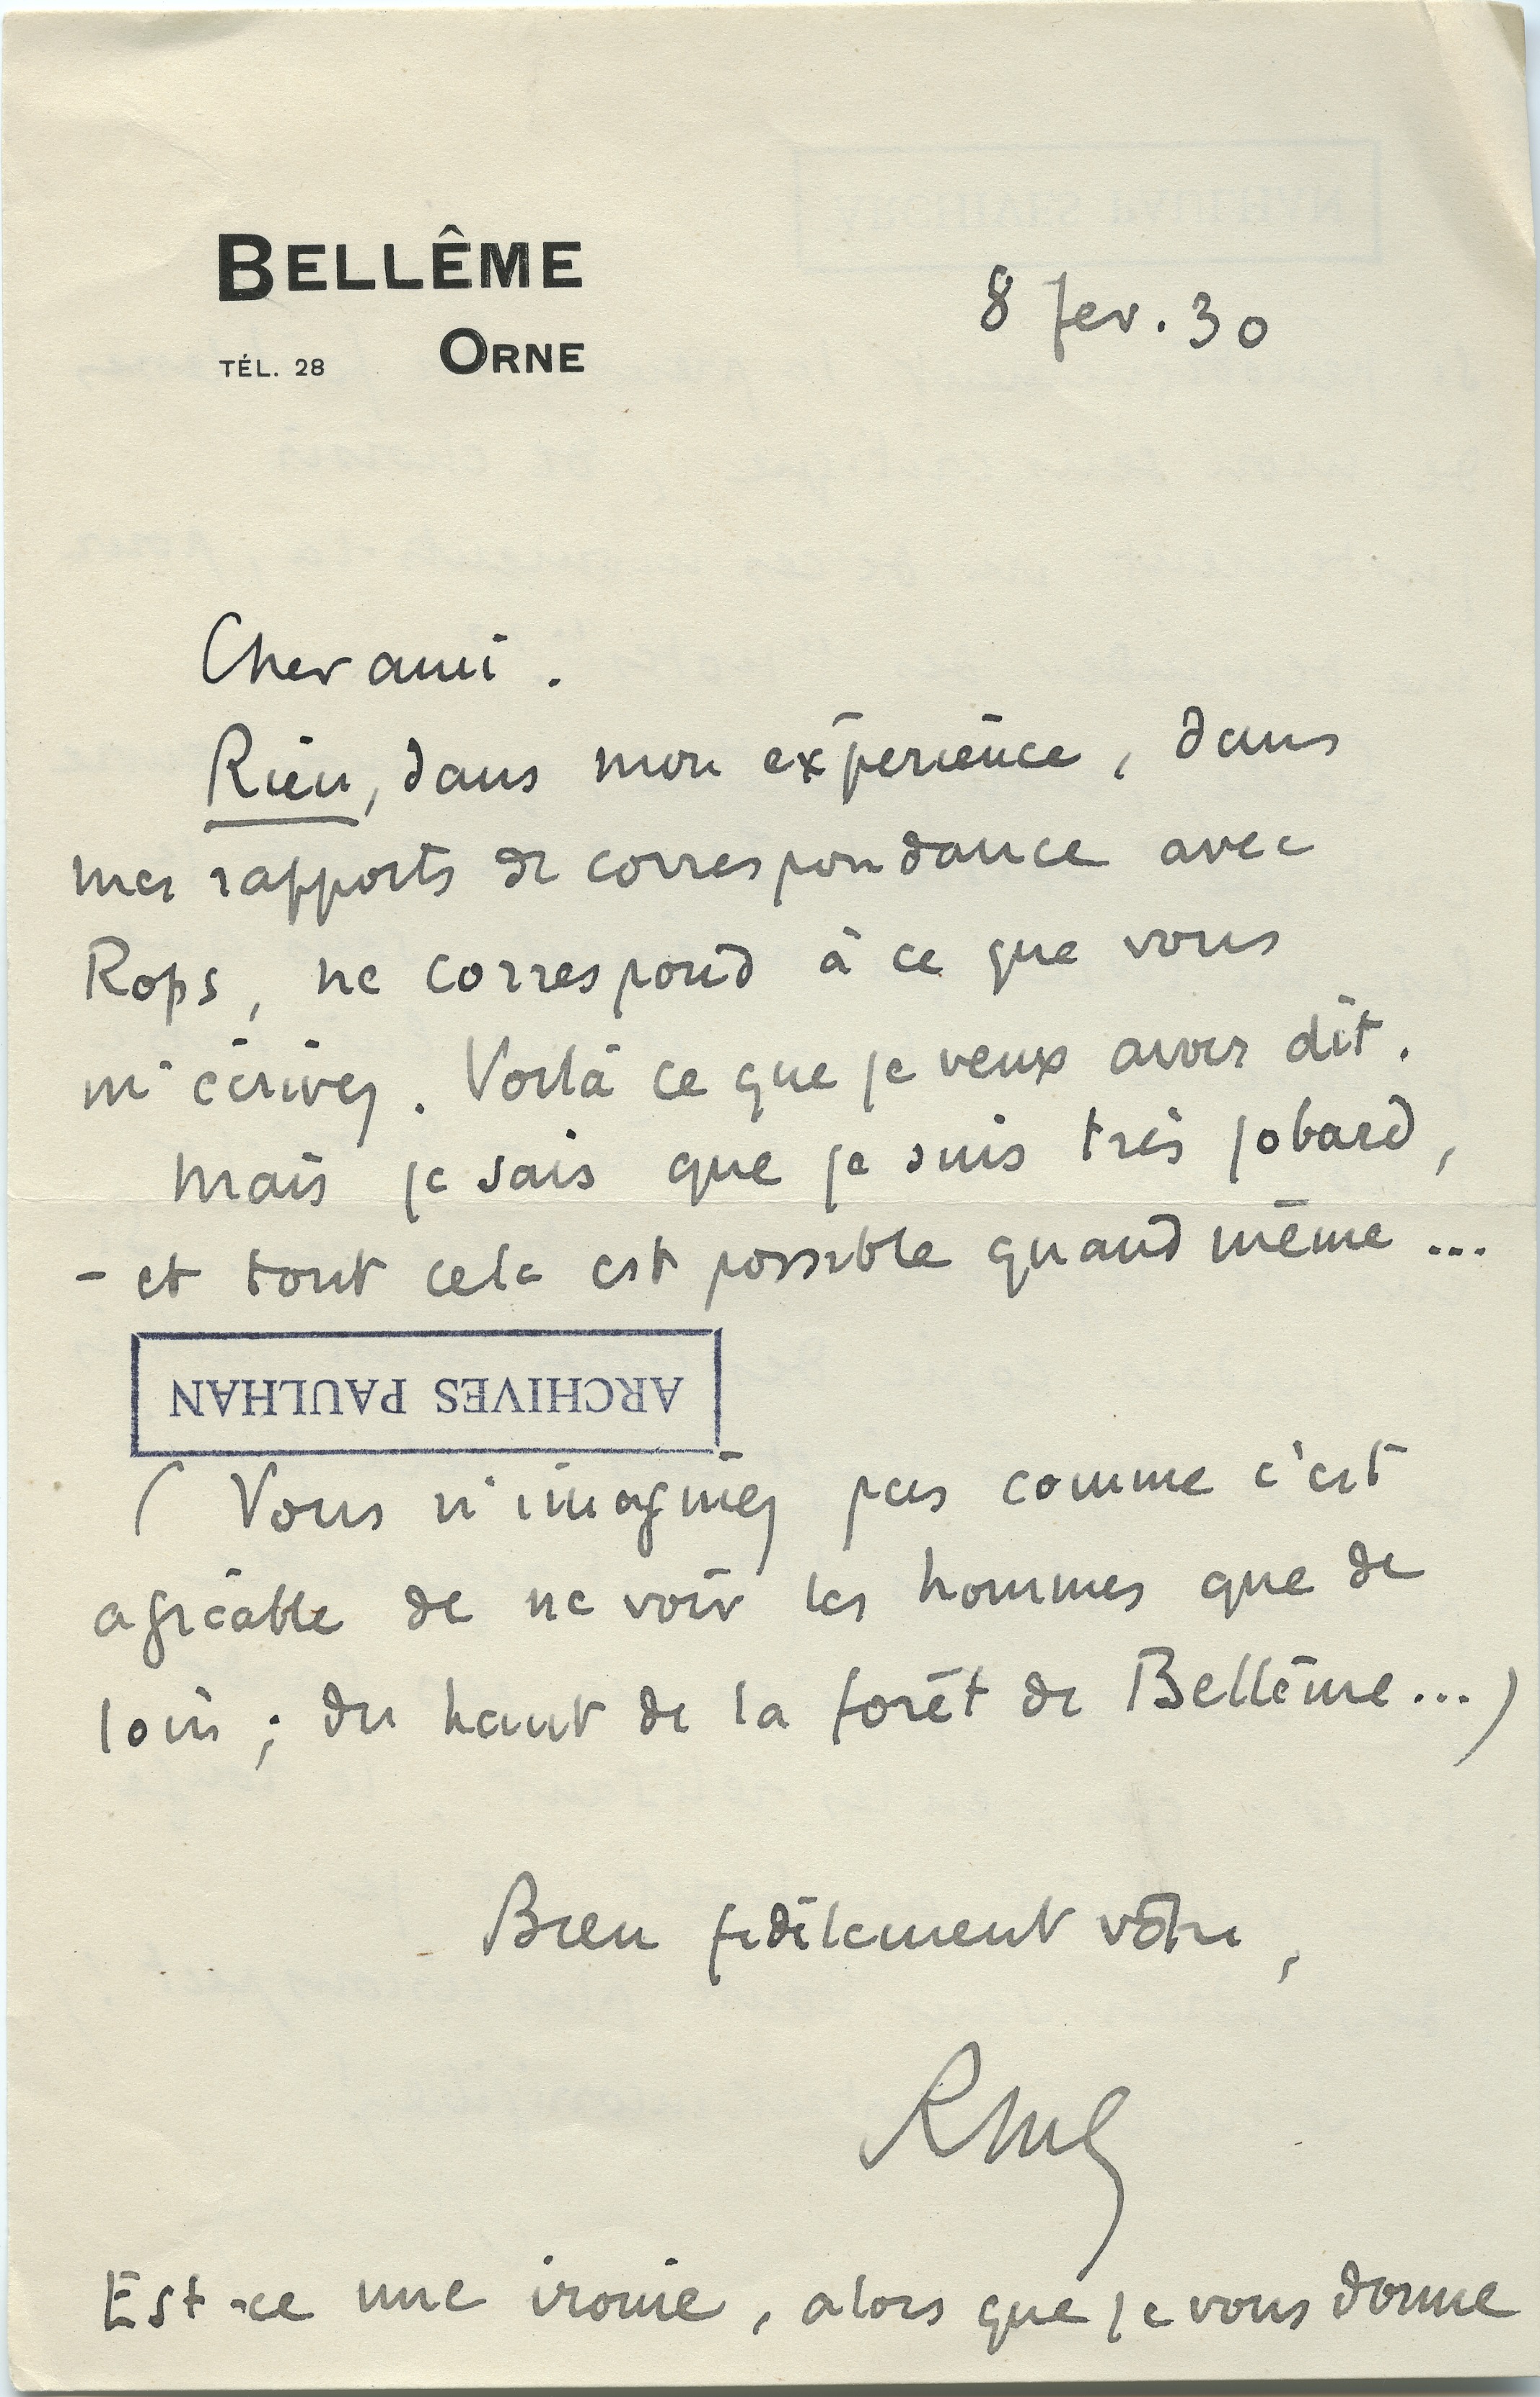 BELLÊME
TÉL. 28 ORNE
8 fev. 30
Cher ami.
Rien, dans mon expérience, dans
mes rapports de correspondance avec
Rops, ne correspond à ce que vous
m'écrivez. Voilà ce que je veux avoir dit.
Mais je sais que je suis très jobard,
- et tout cela est possible quand même...
ARCHIVES PAULHAN
( Vous n'imaginez pas comme c'est
agréable de ne voir les hommes que de
loin ; du haut de la forêt de Bellême...)
Bien fidèlement vôtre,
RMG
Est-ce une ironie, alors que je vous donne